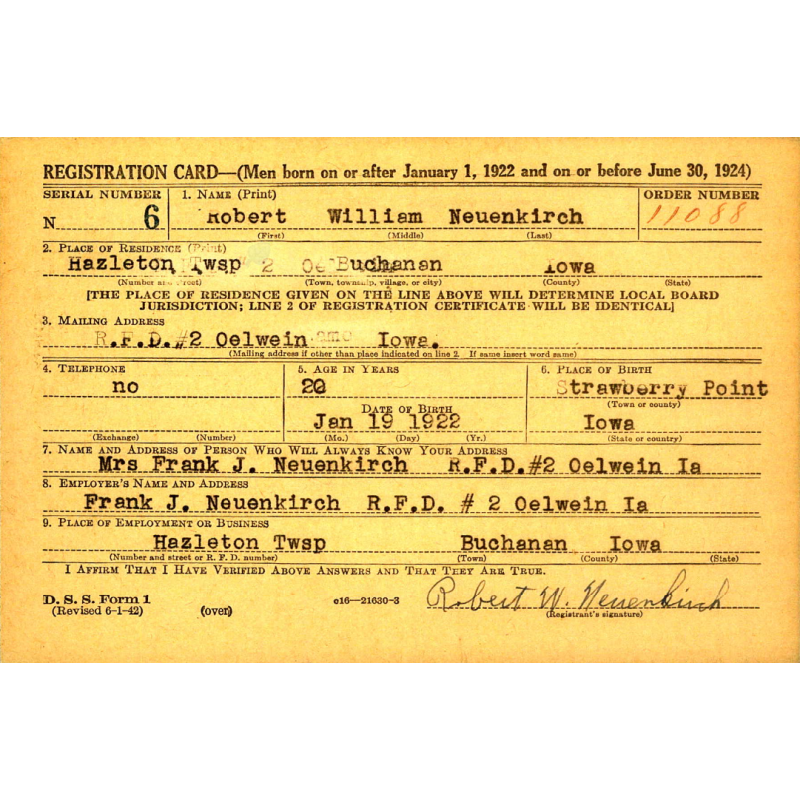 REGISTRATION CARD—(Men born on or after January 1, 1922 and on or before June 30, 1924)
SERIAL NUMBER 1. NAME (Print) ORDER NUMBER
N 6 Robert William Neuenkirch 11088
(First) (Middle) (Last)
2. PLACE OF RESIDENCE (Print)
Hazleton Twsp 2 Buchanan Iowa
(Number and street) (Town, township, village, or city) (County) (State)
[THE PLACE OF RESIDENCE GIVEN ON THE LINE ABOVE WILL DETERMINE LOCAL BOARD
JURISDICTION; LINE 2 OF REGISTRATION CERTIFICATE WILL BE IDENTICAL]
3. MAILING ADDRESS
R.F.D. #2 Oelwein Iowa.
(Mailing address if other than place indicated on line 2. If same insert word same)
4. TELEPHONE 5. AGE IN YEARS 6. PLACE OF BIRTH
no 20 Strawberry Point
DATE OF BIRTH (Town or county)
Jan 19 1922 Iowa
(Exchange) (Number) (Mo.) (Day) (Yr.) (State or country)
7. NAME AND ADDRESS OF PERSON WHO WILL ALWAYS KNOW YOUR ADDRESS
Mrs Frank J. Neuenkirch R.F.D.#2 Oelwein Ia
8. EMPLOYER'S NAME AND ADDRESS
Frank J. Neuenkirch R.F.D. # 2 Oelwein Ia
9. PLACE OF EMPLOYMENT OR BUSINESS
Hazleton Twsp Buchanan Iowa
(Number and street or R. F. D. number) (Town) (County) (State)
I AFFIRM THAT I HAVE VERIFIED ABOVE ANSWERS AND THAT THEY ARE TRUE.
D. S. S. Form 1 e16—21630-3 Robert W. Neuenkirch
(Revised 6-1-42) (over) (Registrant's signature)